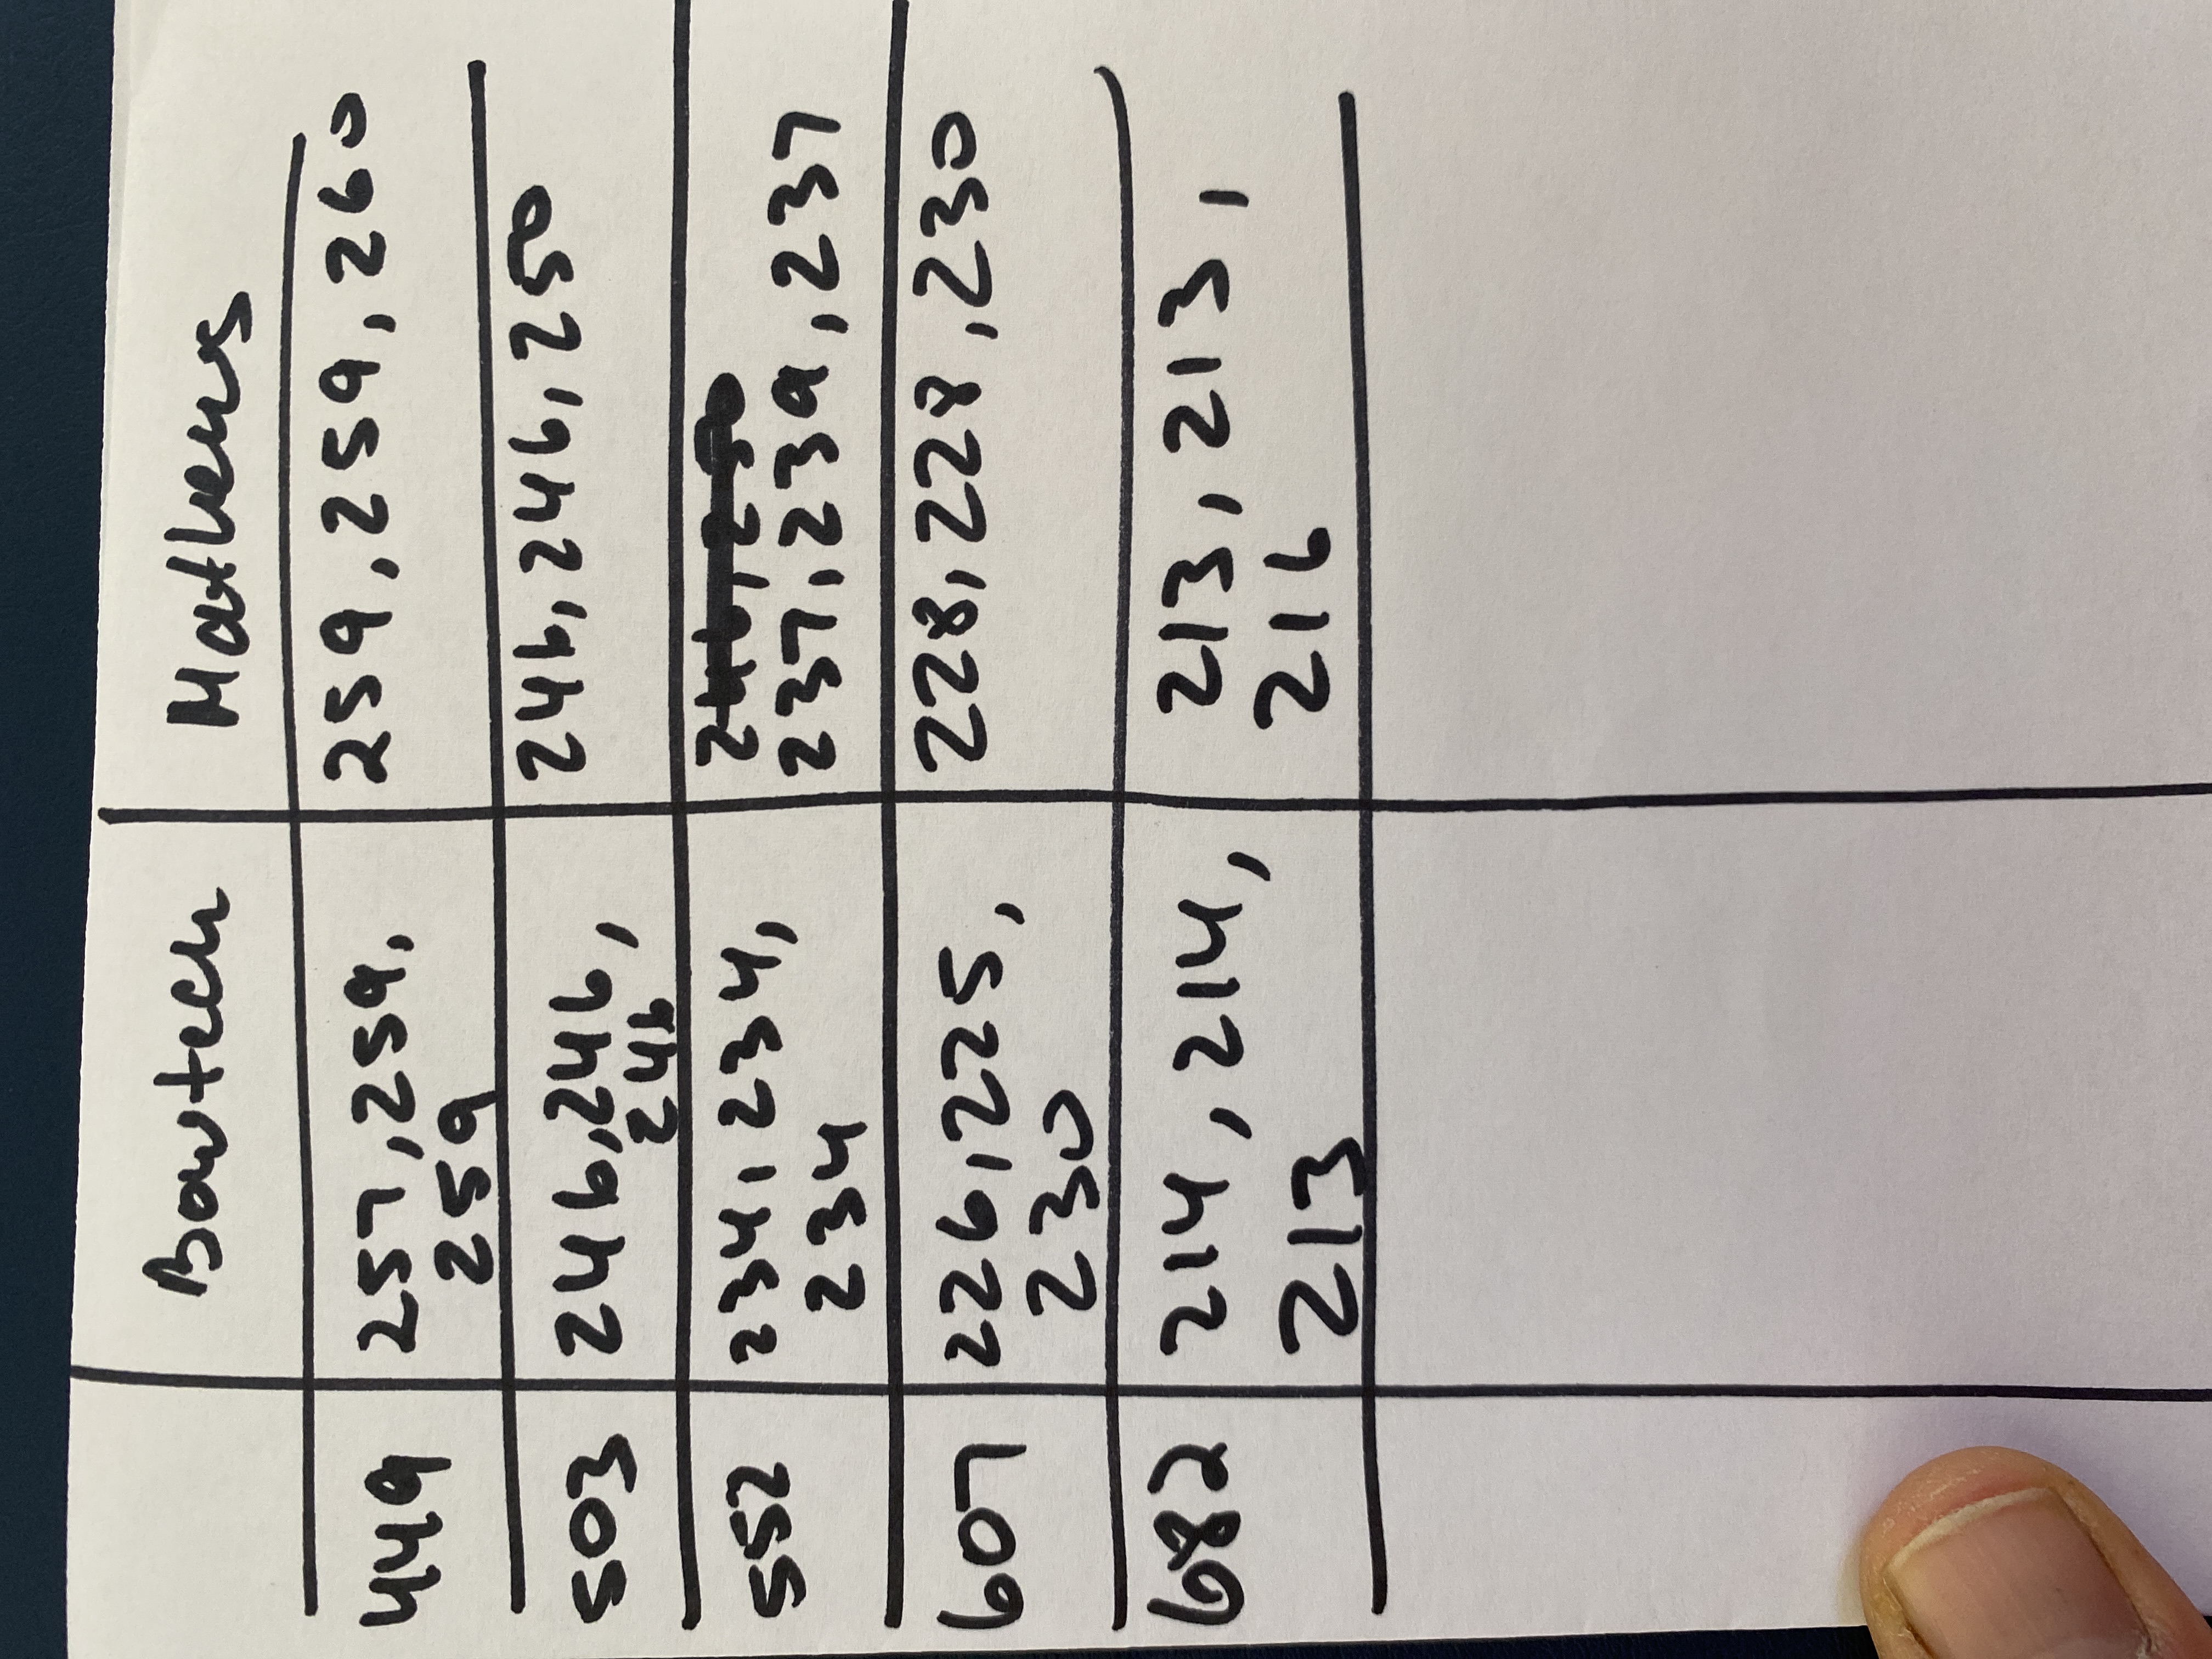 Bowtech Mathews
449 257, 259, 259, 259, 260
259
503 246, 246, 246, 246, 250
246
552 234, 234, 237, 239, 237
234
607 226, 225, 228, 228, 230
230
682 214, 214, 213, 213,
213 216